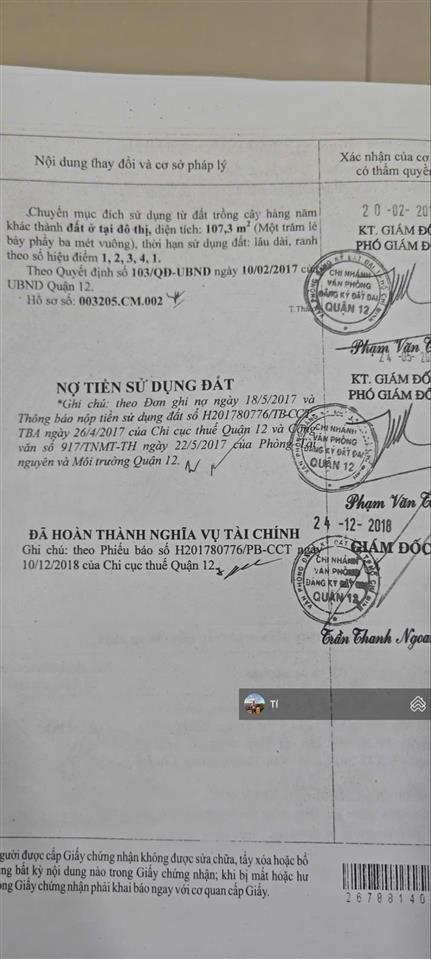 Nội dung thay đổi và cơ sở pháp lý
Xác nhận của cơ
có thẩm quyề
Chuyển mục đích sử dụng từ đất trồng cây hàng năm
khác thành đất ở tại đô thị, diện tích: 107,3 m² (Một trăm lẻ
bảy phẩy ba mét vuông), thời hạn sử dụng đất: lâu dài, ranh
theo số hiệu điểm 1, 2, 3, 4, 1.
Theo Quyết định số 103/QĐ-UBND ngày 10/02/2017 của
UBND Quận 12.
Hồ sơ số: 003205.CM.002
20-02-201
KT. GIÁM ĐỐ
PHÓ GIÁM Đ
CHI NHÁNH
VĂN PHÒNG
ĐĂNG KÝ ĐẤT ĐAI
QUẬN 12
Phạm Văn T
NỢ TIỀN SỬ DỤNG ĐẤT
*Ghi chú: theo Đơn ghi nợ ngày 18/5/2017 và
Thông báo nộp tiền sử dụng đất số H201780776/TB-CCT-
TBA ngày 26/4/2017 của Chi cục thuế Quận 12 và Công
văn số 917/TNMT-TH ngày 22/5/2017 của Phòng Tài
nguyên và Môi trường Quận 12.
24-05-20
KT. GIÁM ĐỐ
PHÓ GIÁM Đ
CHI NHÁNH
VĂN PHÒNG
ĐĂNG KÝ ĐẤT ĐAI
QUẬN 12
Phạm Văn T
ĐÃ HOÀN THÀNH NGHĨA VỤ TÀI CHÍNH
Ghi chú: theo Phiếu báo số H201780776/PB-CCT ngày
10/12/2018 của Chi cục thuế Quận 12
24-12-2018
GIÁM ĐỐC
CHI NHÁNH
VĂN PHÒNG
ĐĂNG KÝ ĐẤT ĐAI
QUẬN 12
Trần Thanh Ngoa
Tí
gười được cấp Giấy chứng nhận không được sửa chữa, tẩy xóa hoặc bổ
ng bất kỳ nội dung nào trong Giấy chứng nhận; khi bị mất hoặc hư
ng Giấy chứng nhận phải khai báo ngay với cơ quan cấp Giấy.
26788140